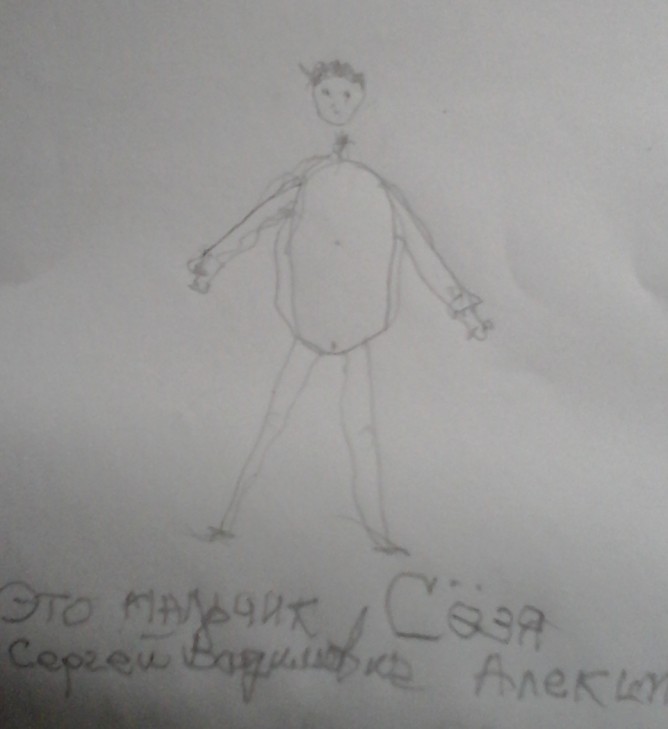 Это мальчик, Сёзя
Сергей Вадимовке Алекс